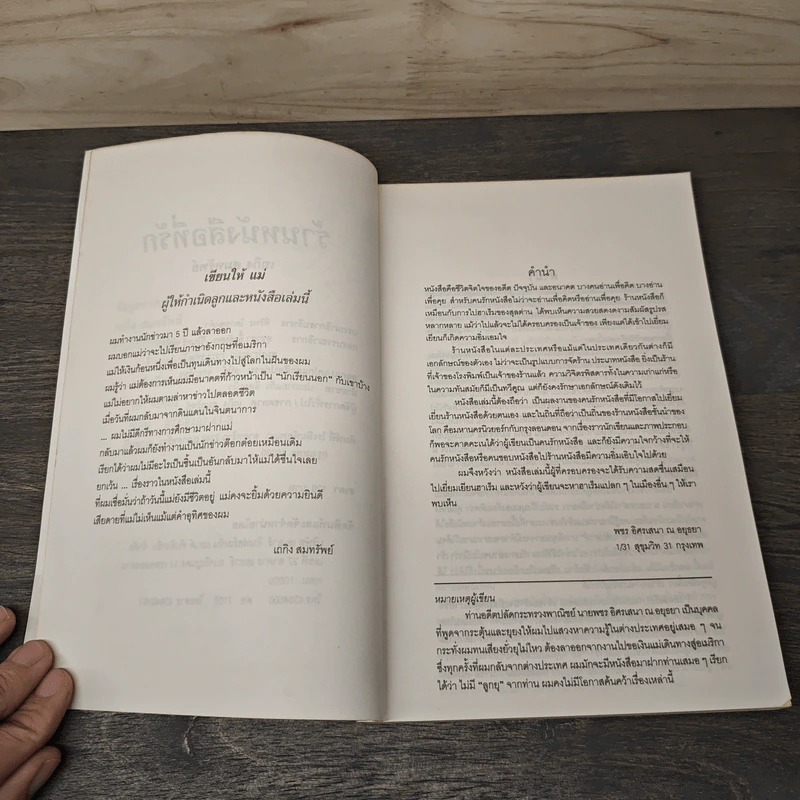 เขียนให้ แม่
ผู้ให้กำเนิดลูกและหนังสือเล่มนี้
ผมทำงานนักข่าวมา 5 ปี แล้วลาออก
ผมบอกแม่ว่าจะไปเรียนภาษาอังกฤษที่อเมริกา
แม่ให้เงินก้อนหนึ่งเพื่อเป็นทุนเดินทางไปสู่โลกในฝันของผม
ผมรู้ว่า แม่ต้องการเห็นผมมีอนาคตที่ก้าวหน้าเป็น "นักเรียนนอก" กับเขาบ้าง
แม่ไม่อยากให้ผมตามล่าหาข่าวไปตลอดชีวิต
เมื่อวันที่ผมกลับมาจากดินแดนในจินตนาการ
... ผมไม่มีดีกรีทางการศึกษามาฝากแม่
กลับมาแล้วผมก็ยังทำงานเป็นนักข่าวต๊อกต๋อยเหมือนเดิม
เรียกได้ว่าผมไม่มีอะไรเป็นชิ้นเป็นอันกลับมาให้แม่ได้ชื่นใจเลย
ยกเว้น ... เรื่องราวในหนังสือเล่มนี้
ที่ผมเชื่อมั่นว่าถ้าวันนี้แม่ยังมีชีวิตอยู่ แม่คงจะยิ้มด้วยความยินดี
เสียดายที่แม่ไม่เห็นแม้แต่คำอุทิศของผม
เถกิง สมทรัพย์
คำนำ
หนังสือคือชีวิตจิตใจของอดีต ปัจจุบัน และอนาคต บางคนอ่านเพื่อคิด บางอ่าน
เพื่อคุย สำหรับคนรักหนังสือไม่ว่าจะอ่านเพื่อคิดหรืออ่านเพื่อคุย ร้านหนังสือก็
เหมือนกับการไปฮาเร็มของสุลต่าน ได้พบเห็นความสวยสดงดงามสัมผัสรูปรส
หลากหลาย แม้ว่าไปแล้วจะไม่ได้ครอบครองเป็นเจ้าของ เพียงแต่ได้เข้าไปเยี่ยม
เยียนก็เกิดความอิ่มเอมใจ
ร้านหนังสือในแต่ละประเทศหรือแม้แต่ในประเทศเดียวกันต่างก็มี
เอกลักษณ์ของตัวเอง ไม่ว่าจะเป็นรูปแบบการจัดร้าน ประเภทหนังสือ ยิ่งเป็นร้าน
ที่เจ้าของโรงพิมพ์เป็นเจ้าของร้านแล้ว ความวิจิตรพิสดารทั้งในความเก่าแก่หรือ
ในความทันสมัยก็มีเป็นทวีคูณ แต่ก็ยังคงรักษาเอกลักษณ์ดังเดิมไว้
หนังสือเล่มนี้ต้องถือว่า เป็นผลงานของคนรักหนังสือที่มีโอกาสไปเยี่ยม
เยี่ยนร้านหนังสือด้วยตนเอง และในถิ่นที่ถือว่าเป็นถิ่นของร้านหนังสือชั้นนำของ
โลก คือมหานครนิวยอร์กกับกรุงลอนดอน จากเรื่องราวนักเขียนและภาพประกอบ
ก็พอจะคาดคะเนได้ว่าผู้เขียนเป็นคนรักหนังสือ และก็ยังมีความใจกว้างที่จะให้
คนรักหนังสือหรือคนชอบหนังสือไปร้านหนังสือมีความอิ่มเอิบใจไปด้วย
ผมจึงหวังว่า หนังสือเล่มนี้ผู้ที่ครอบครองจะได้รับความสดชื่นเสมือน
ไปเยี่ยมเยียนฮาเร็ม และหวังว่าผู้เขียนจะหาฮาเร็มแปลก ๆ ในเมืองอื่น ๆ ให้เรา
พบเห็น
พชร อิศรเสนา ณ อยุธยา
1/31 สุขุมวิท 31 กรุงเทพ
หมายเหตุผู้เขียน
ท่านอดีตปลัดกระทรวงพาณิชย์ นายพชร อิศรเสนา ณ อยุธยา เป็นบุคคล
ที่พูดจากระตุ้นและยุยงให้ผมไปแสวงหาความรู้ในต่างประเทศอยู่เสมอ ๆ จน
กระทั่งผมทนเสียงยั่วยุไม่ไหว ต้องลาออกจากงานไปขอเงินแม่เดินทางสู่อเมริกา
ซึ่งทุกครั้งที่ผมกลับจากต่างประเทศ ผมมักจะมีหนังสือมาฝากท่านเสมอ ๆ เรียก
ได้ว่า ไม่มี "ลูกยุ" จากท่าน ผมคงไม่มีโอกาสค้นคว้าเรื่องเหล่านี้